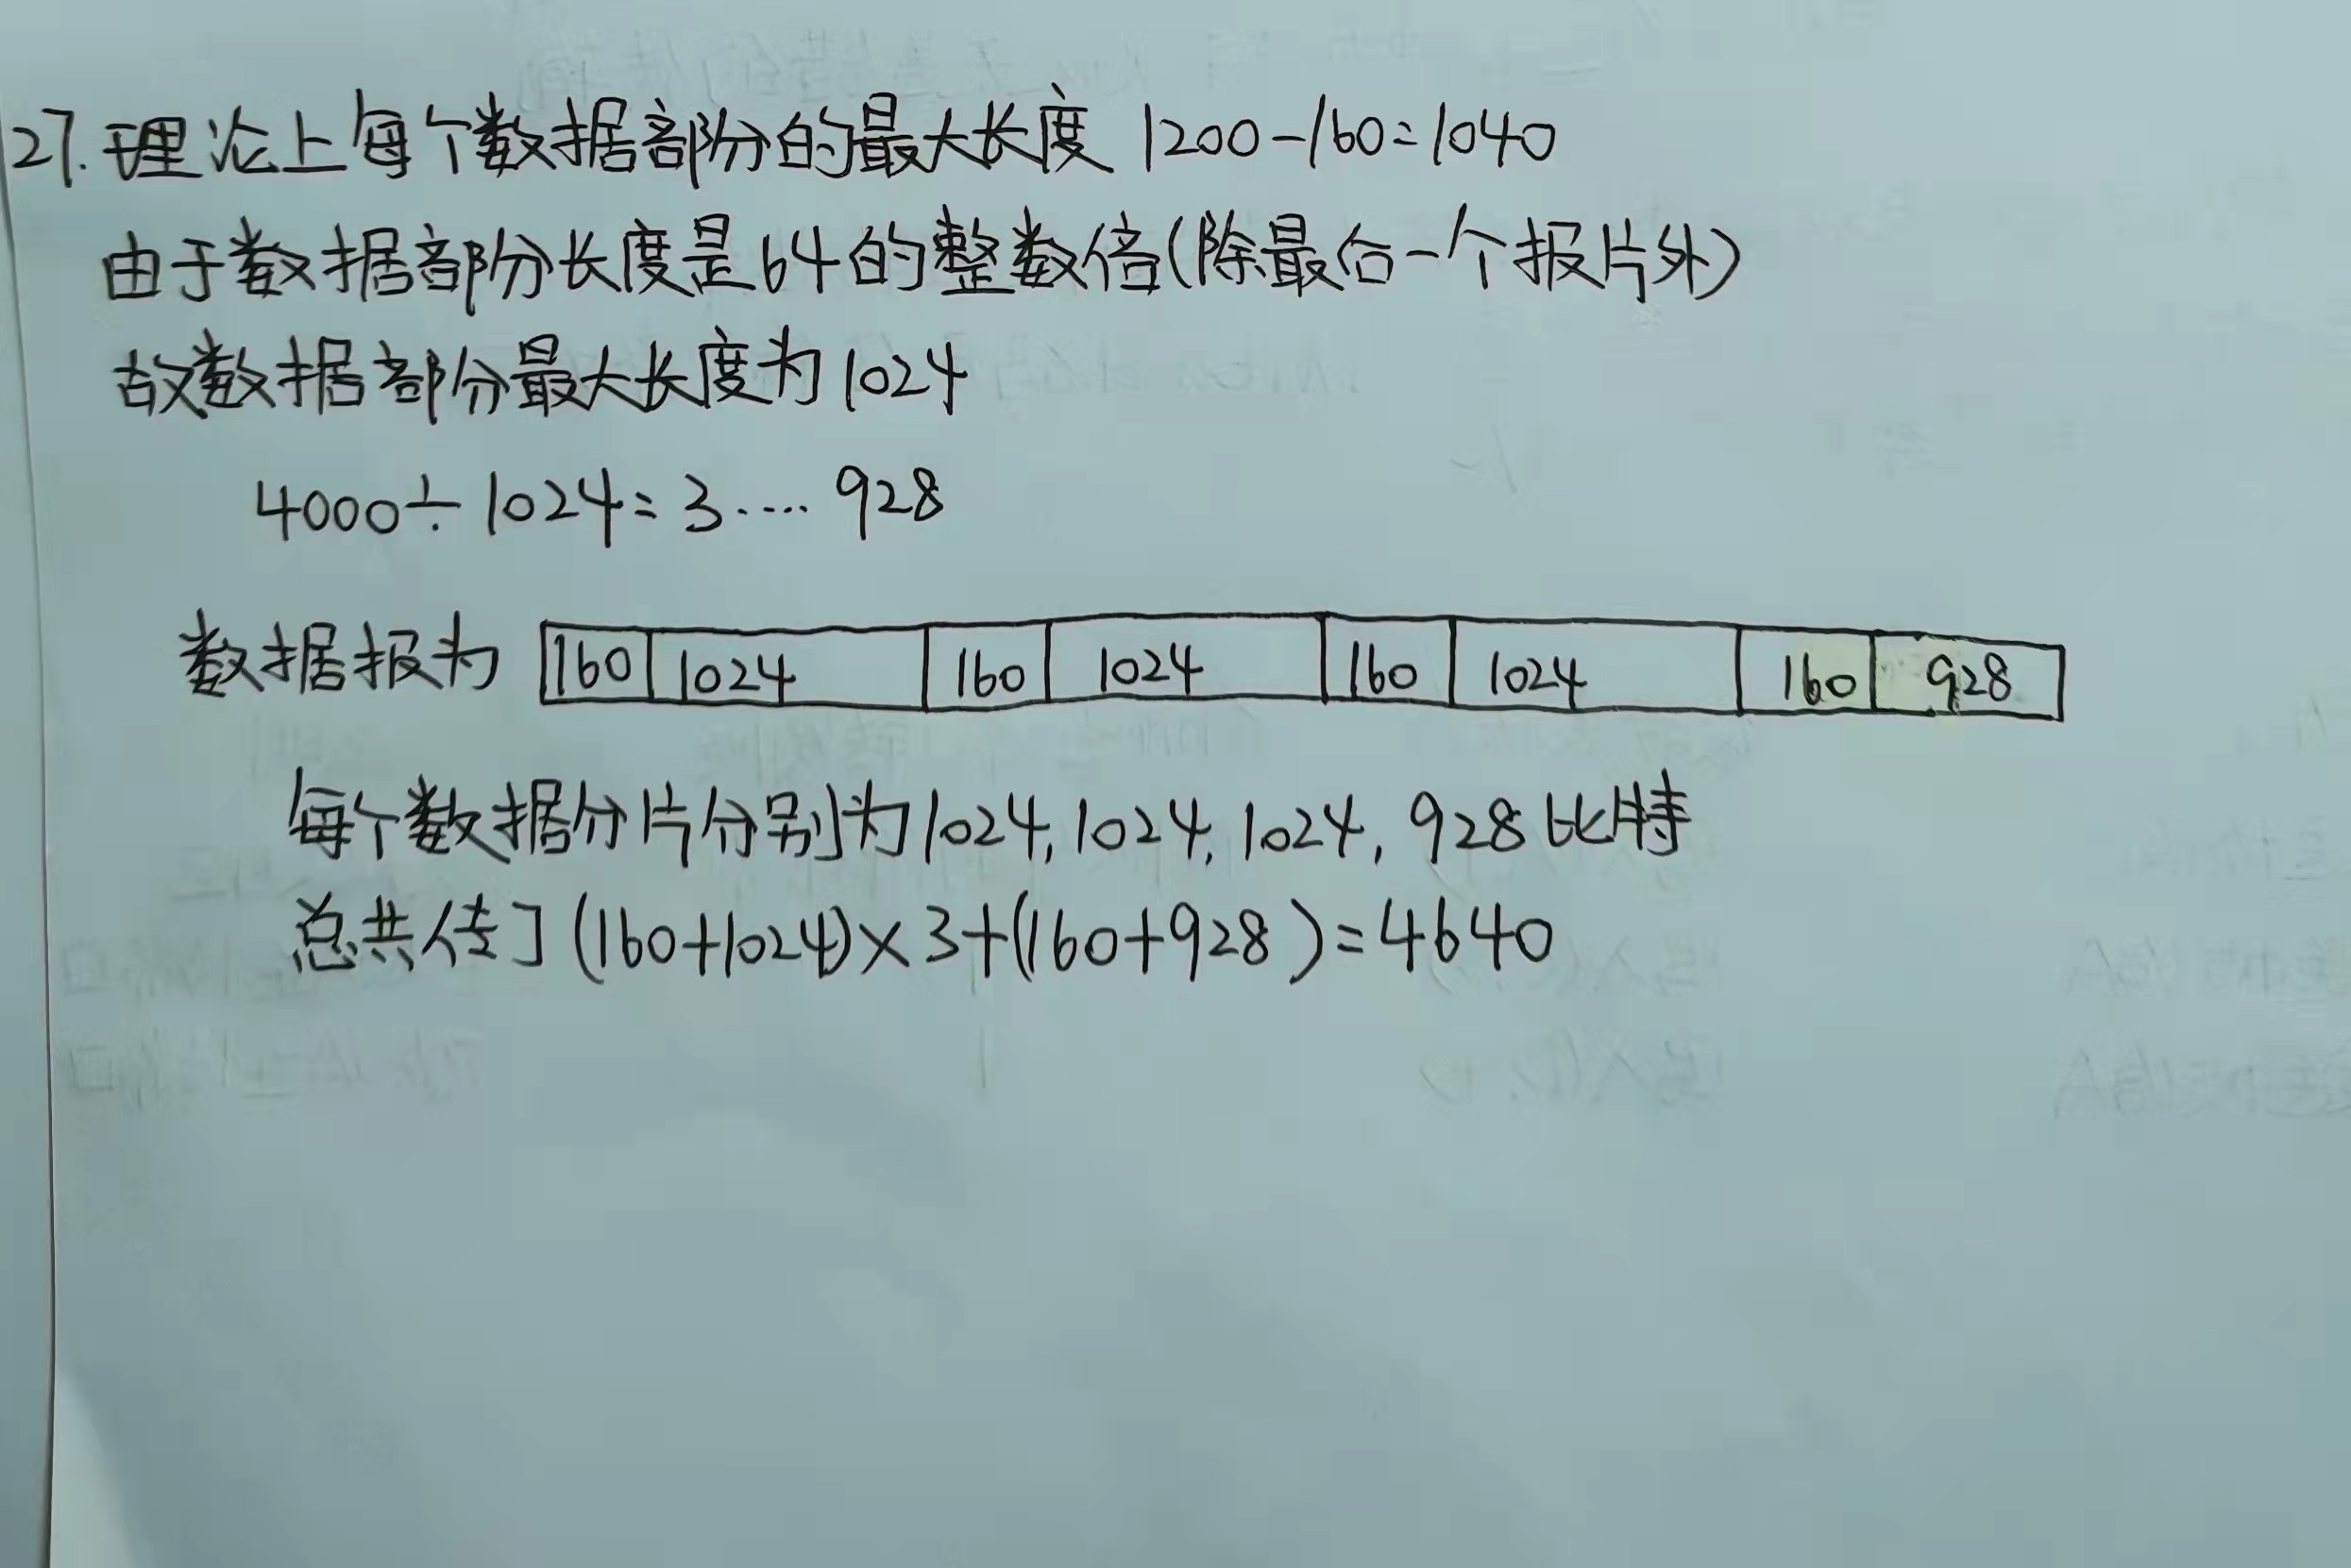 27. 理论上每个数据部份的最大长度 1200-160=1040
由于数据部分长度是64的整数倍(除最后一个报片外)
故数据部分最大长度为1024
4000÷1024=3····928
数据报为 160 1024 160 1024 160 1024 160 928
每个数据分片分别为1024,1024,1024,928比特
总共传了(160+1024)×3+(160+928)=4640